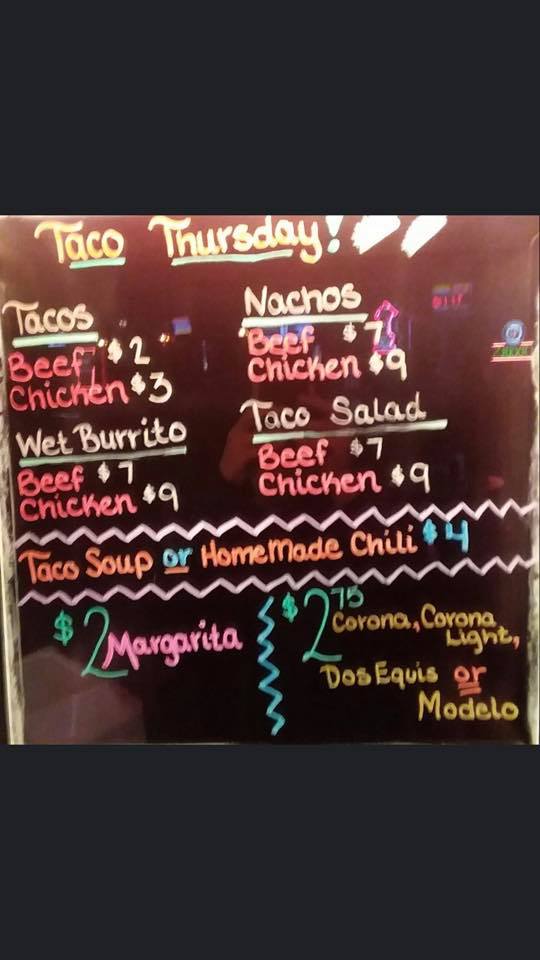 Taco Thursday!
Tacos
Beef $2
Chicken $3
Nachos
Beef $7
Chicken $9
Wet Burrito
Beef $7
Chicken $9
Taco Salad
Beef $7
Chicken $9
Taco Soup or HomeMade Chili $4
$2 Margarita
$2 75 Corona, Corona
Light,
Dos Equis or
Modelo